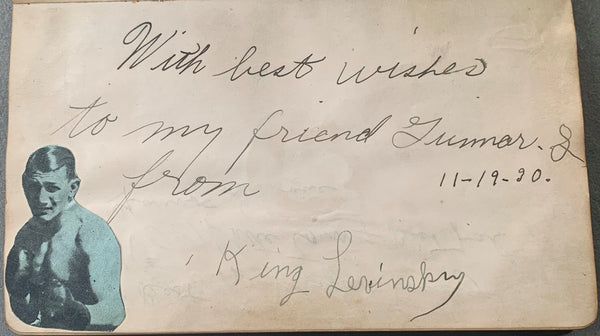 With best wishes
to my friend Gunnar. &
from
11-19-30.
King Levinsky